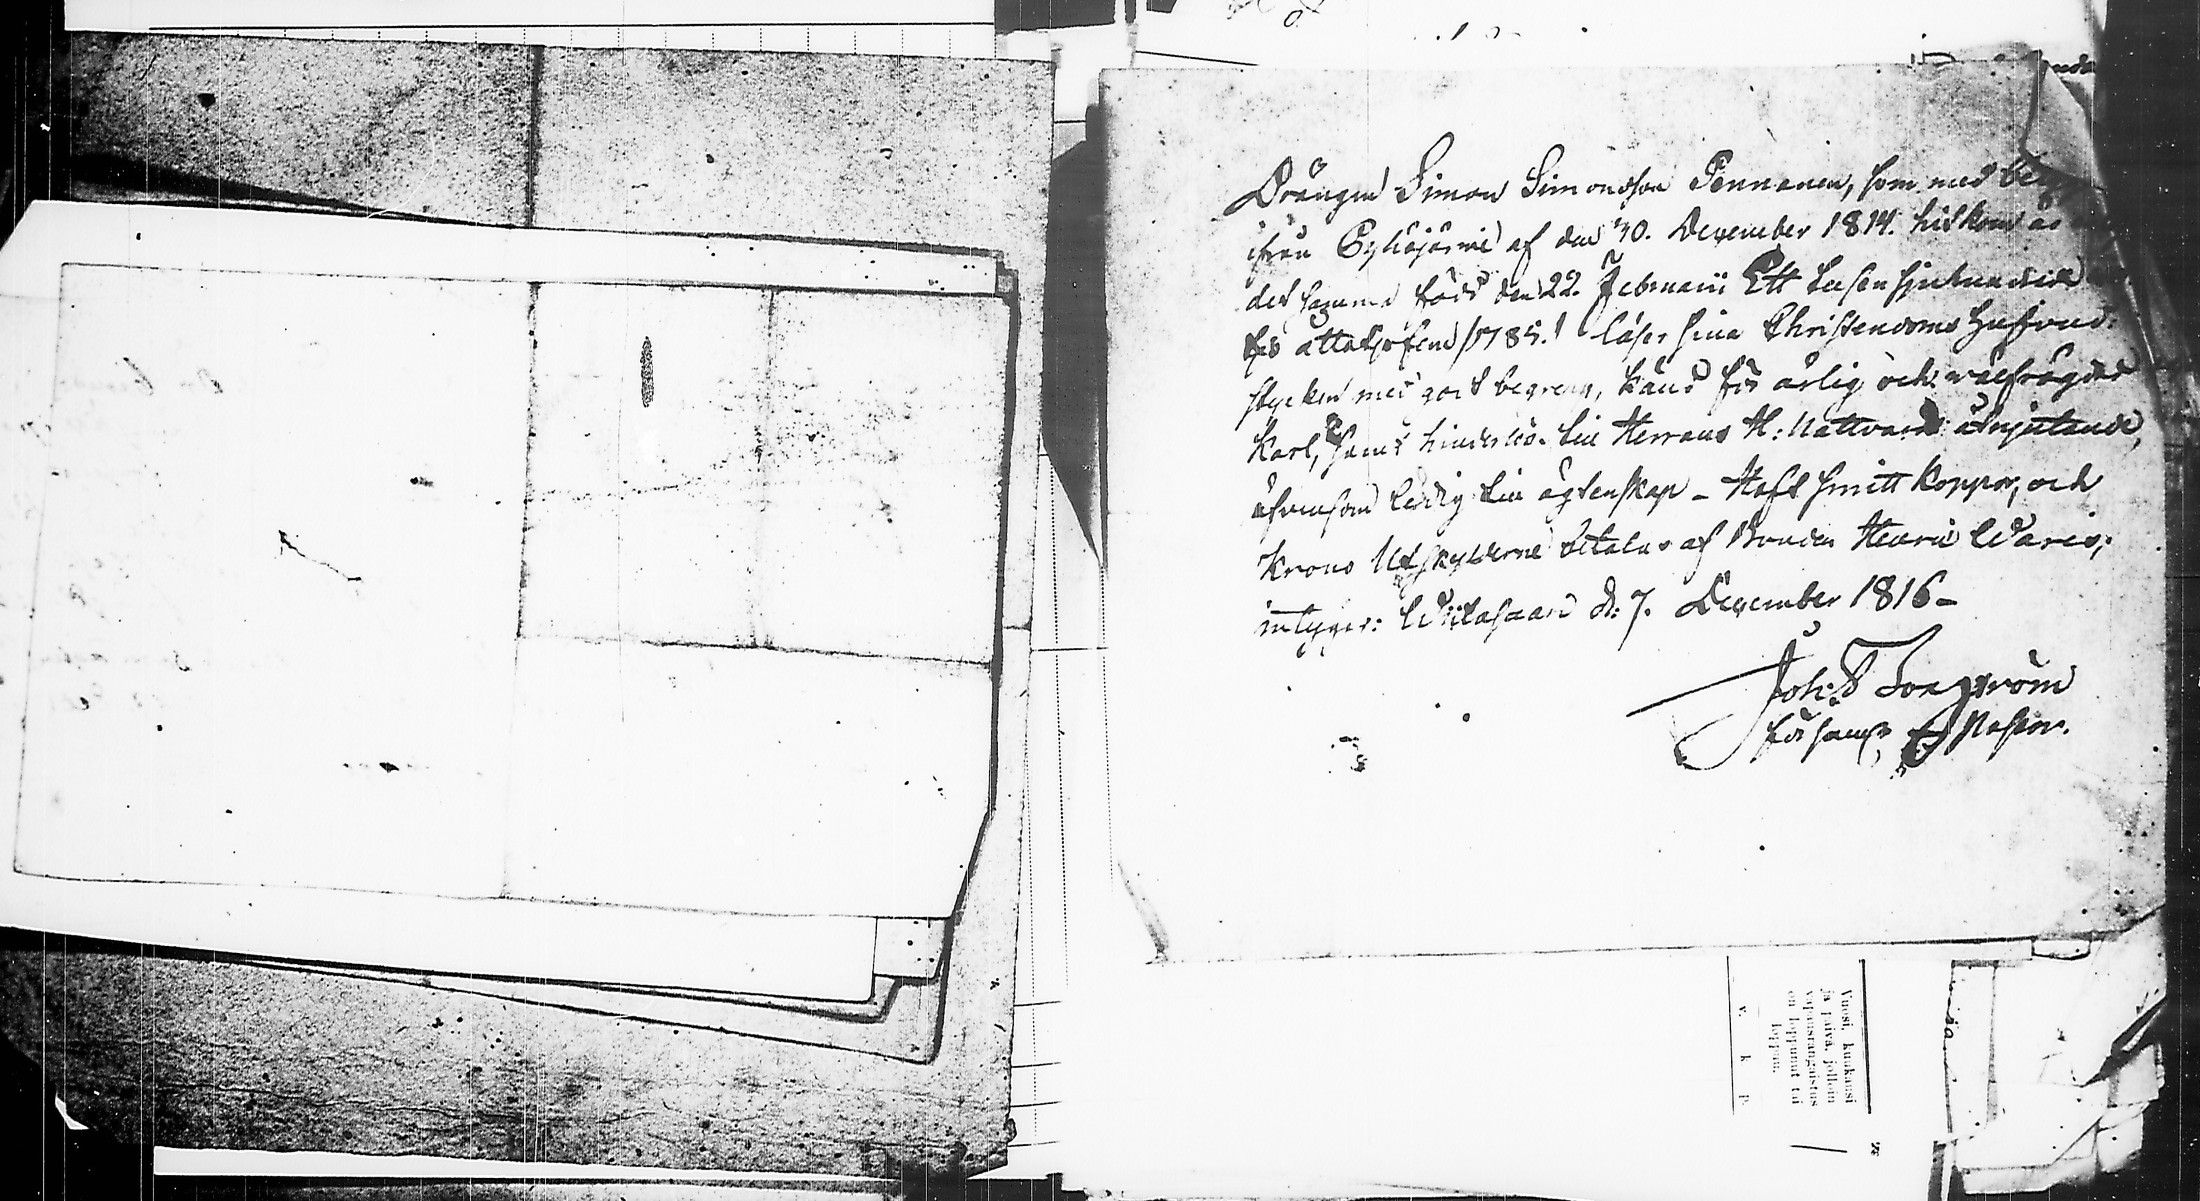 Drängen Simon Simonsson Pennanen, som med
ifrån Pyhäjärvi af den 30. December 1814. hitkom är
det samma född den 22. Februarii Ett tusen sjuhundrade
åttatijofem /1785./ läser sina Christendoms hufvud
stycken med godt begrepp, känd för ärlig och välfrägdad
Karl, samt hinderlös till Herrans H: Nattvard åtnjutande,
äfvensom ledig till ägtenskap – Haft Smitt koppor, och
Krono Utskylderne betalas af Bonden Henric Waris;
intygar: Wiitasaari d: 7. December 1816 –
Joh: Forsström
församl: Pastor.
Vuosi, kuukausi
ja päivä, jolloin
vapausrangaistus
on loppunut tai
loppuu.
v. k. p.